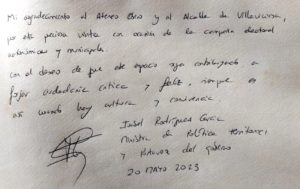 Mi agradecimiento al Ateneo y al Alcalde de
por esta visita con ocasión de la campaña electoral
autonómica y municipal.
Con el deseo de que este espacio siga contribuyendo a
forjar ciudadanía crítica y feliz, siempre es
así cuando hay cultura y convivencia
Isabel Rodríguez García
Ministra de Política Territorial
y Portavoz del gobierno
20 MAYO 2023